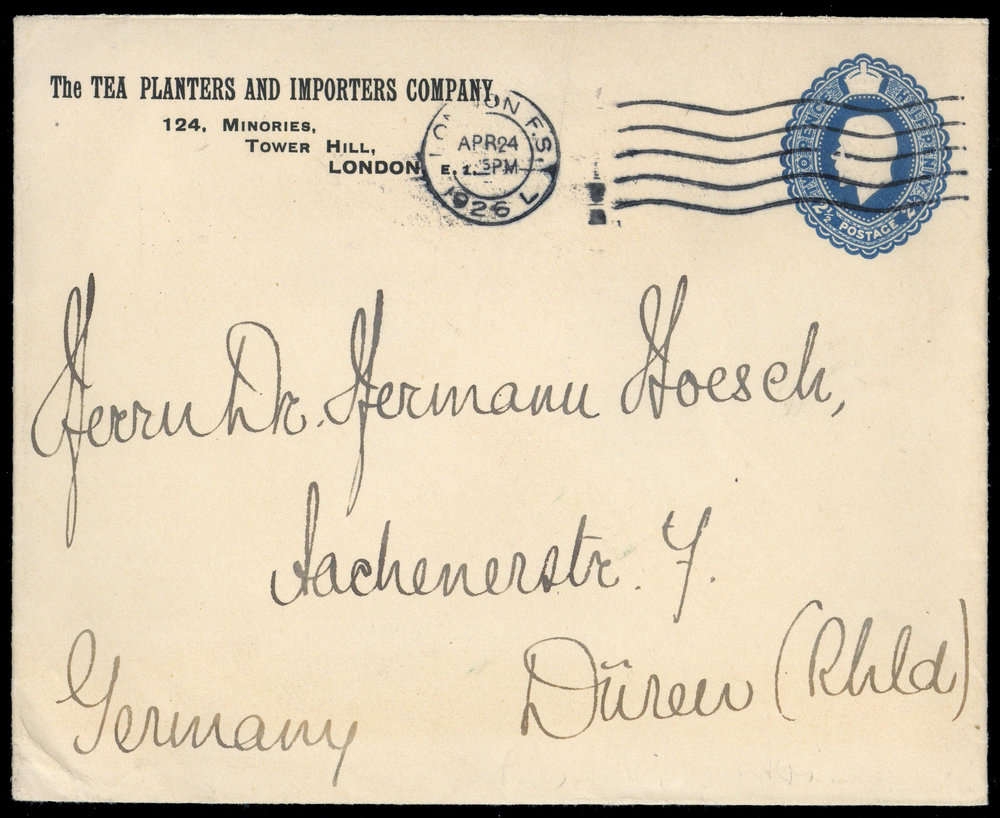 The TEA PLANTERS AND IMPORTERS COMPANY,
124, MINORIES,
TOWER HILL,
LONDON, E. 1.
LONDON F.S.
APR 24
5PM
1926
L
TWO PENCE HALFPENNY
2½ POSTAGE 2½
Herrn Dr. Hermann Hoesch,
Aachenerstr. 7.
Germany Düren (Rhld)